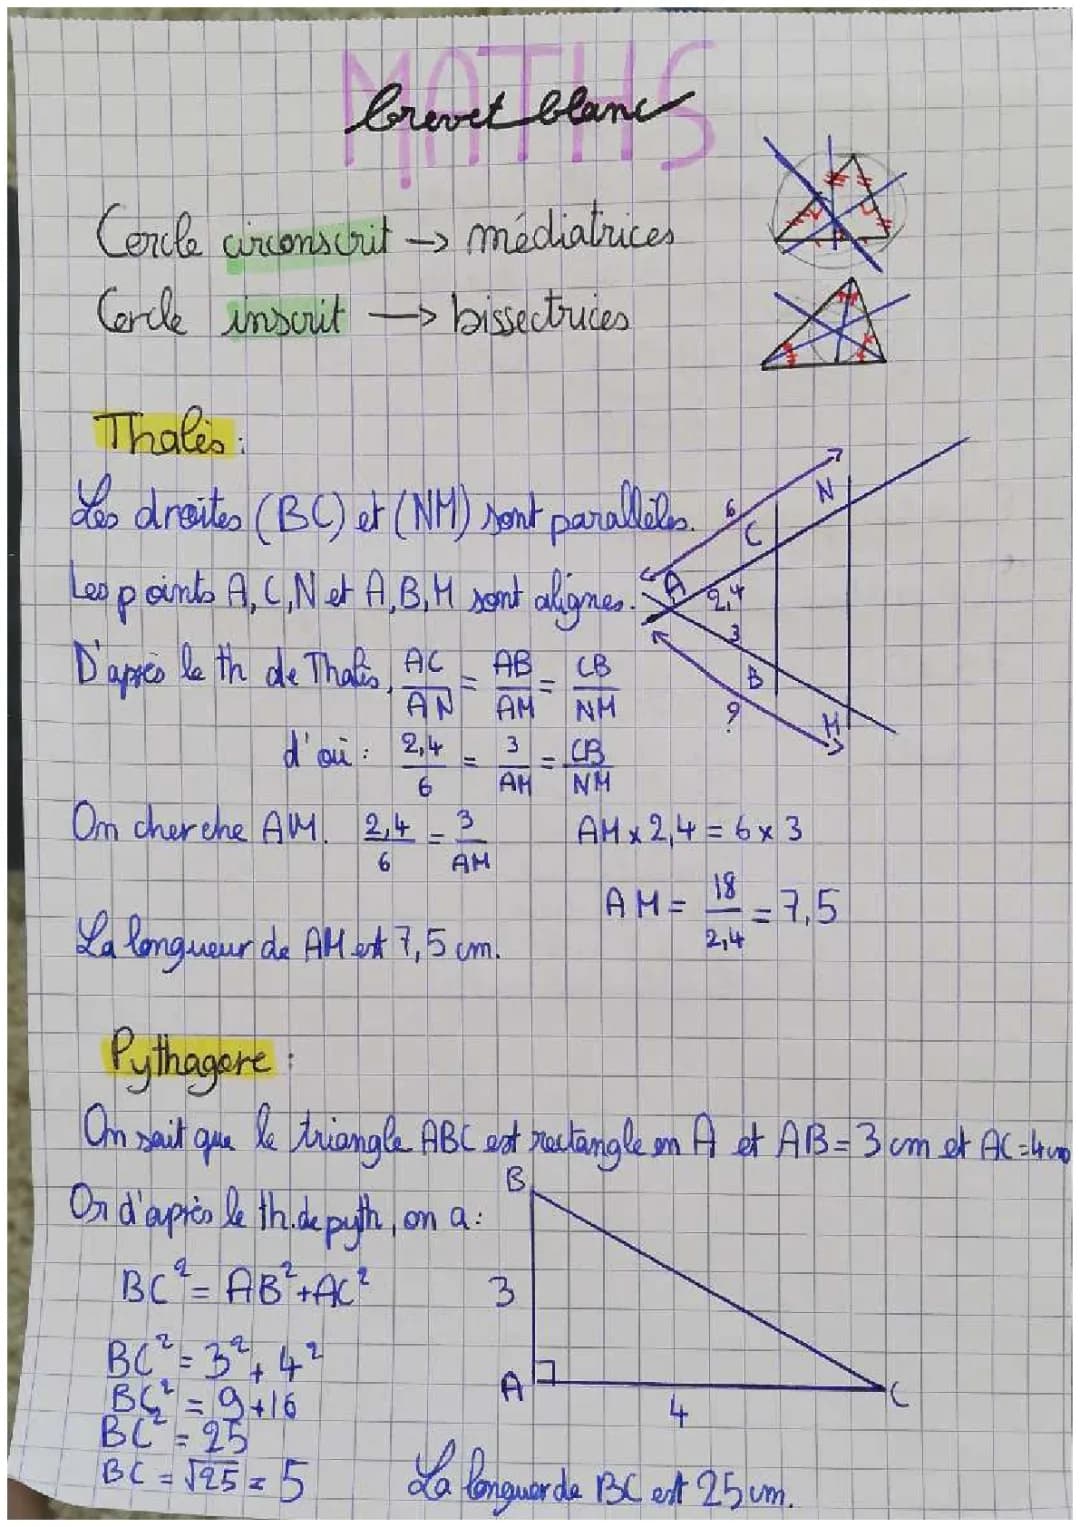 MATHS
brevet blanc
Cercle circonscrit → médiatrices
Cercle inscrit → bissectrices
Thalès :
Les droites (BC) et (NM) sont parallèles.
Les points A, C, N et A, B, M sont alignes.
D'après le th de Thalès, AC/AN = AB/AM = CB/NM
d'où : 2,4/6 = 3/AM = CB/NM
On cherche AM. 2,4/6 = 3/AM
AM x 2,4 = 6 x 3
AM = 18/2,4 = 7,5
La longueur de AM est 7,5 cm.
6
N
C
A
2,4
3
B
?
M
Pythagore :
On sait que le triangle ABC est rectangle en A et AB = 3 cm et AC = 4 cm
Or d'après le th. de pyth, on a :
BC² = AB² + AC²
BC² = 3² + 4²
BC² = 9 + 16
BC² = 25
BC = √25 = 5
B
3
A
4
C
La longuer de BC est 25 cm.